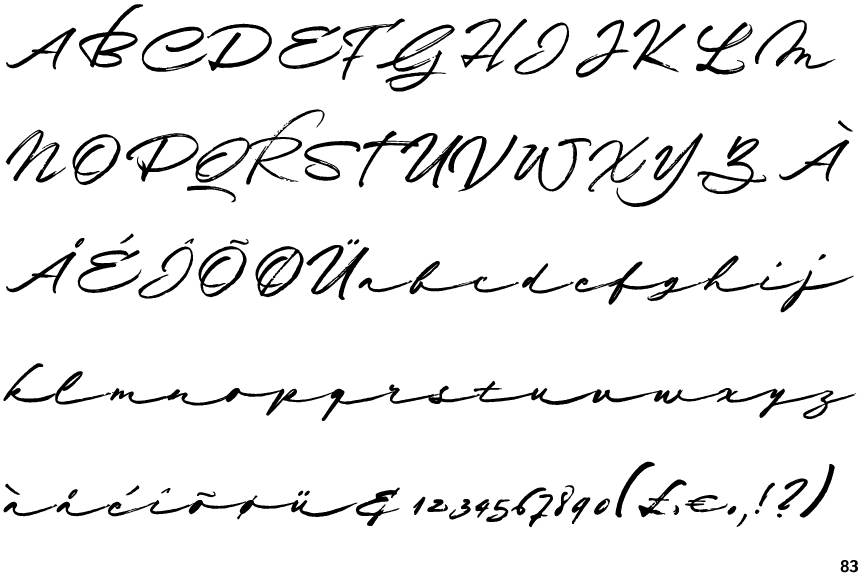 ABCDEFGHIJKLM
NOPQRSTUVWXYZÀ
ÅÉÎÕØÜabcdefghij
klmnopqrstuvwxyz
àåéîõøü&1234567890(£.€.,!?)
83